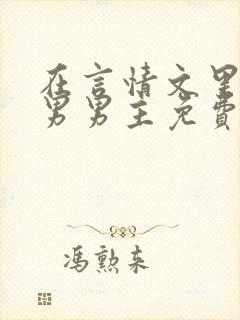 在言情文里
男男主免費
馮勲来